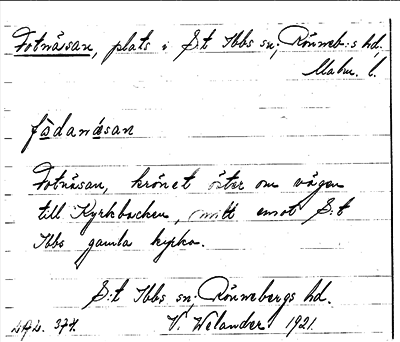 Fotnäsan, plats i S:t Ibbs sn; Rönneb:s hd,
Malm. l.
fodanæsan
Fotnäsan, krönet öster om vägen
till Kyrkbacken, mitt emot S:t
Ibbs gamla kyrka.
S:t Ibbs sn; Rönnebergs hd.
V. Welander 1921.